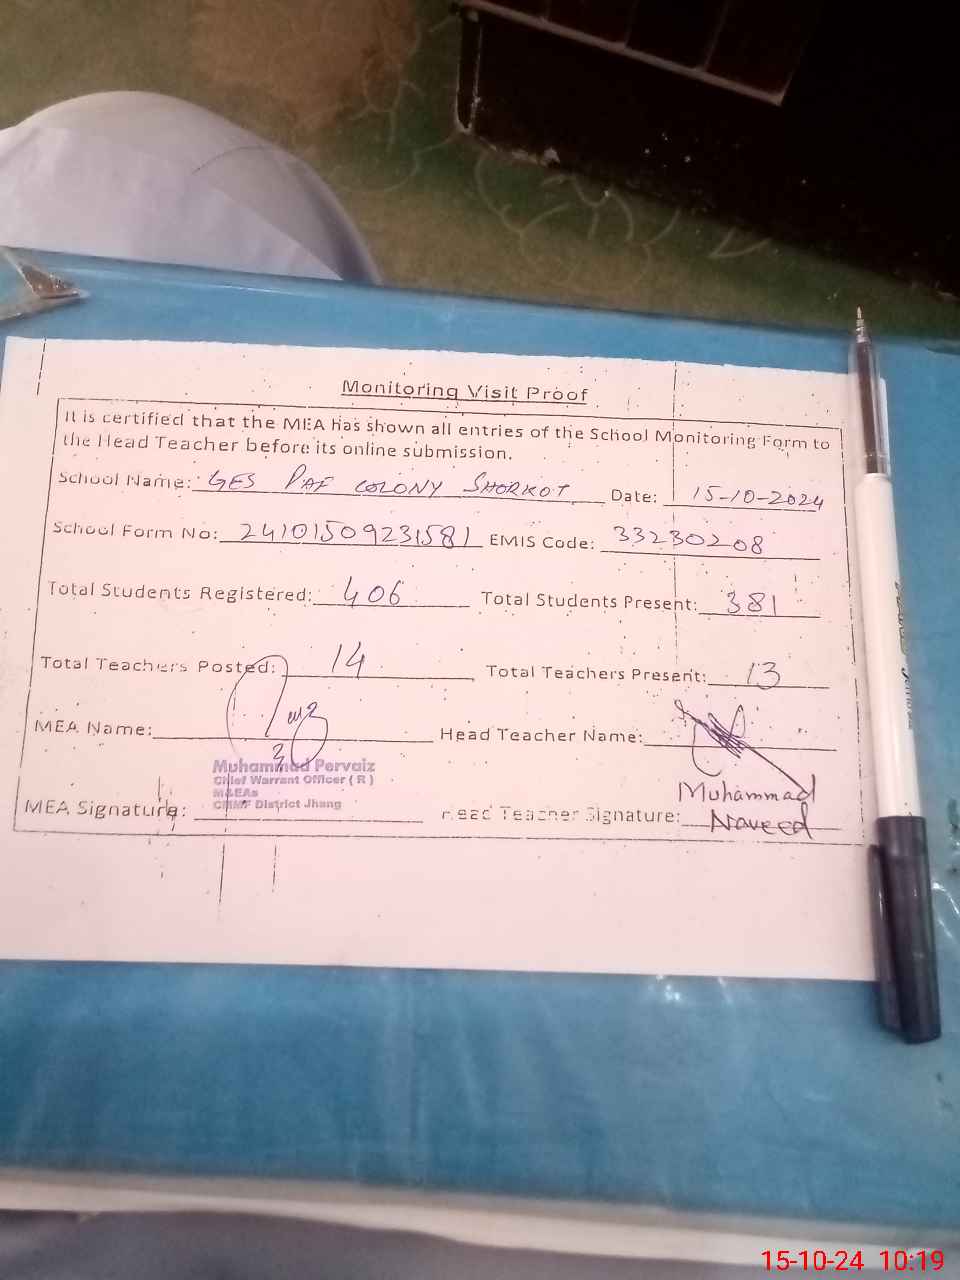 Monitoring Visit Proof
It is certified that the MEA has shown all entries of the School Monitoring Form to
the Head Teacher before its online submission.
School Name: GES PAF COLONY SHORKOT Date: 15-10-2024
School Form No: 24101509231581 EMIS Code: 33230208
Total Students Registered: 406 Total Students Present: 381
Total Teachers Posted: 14 Total Teachers Present: 13
MEA Name: Head Teacher Name:
Muhammad Pervaiz
Chief Warrant Officer ( R )
M&EAs
CMMF District Jhang
MEA Signature: Head Teacher Signature: Muhammad
Naveed
15-10-24 10:19